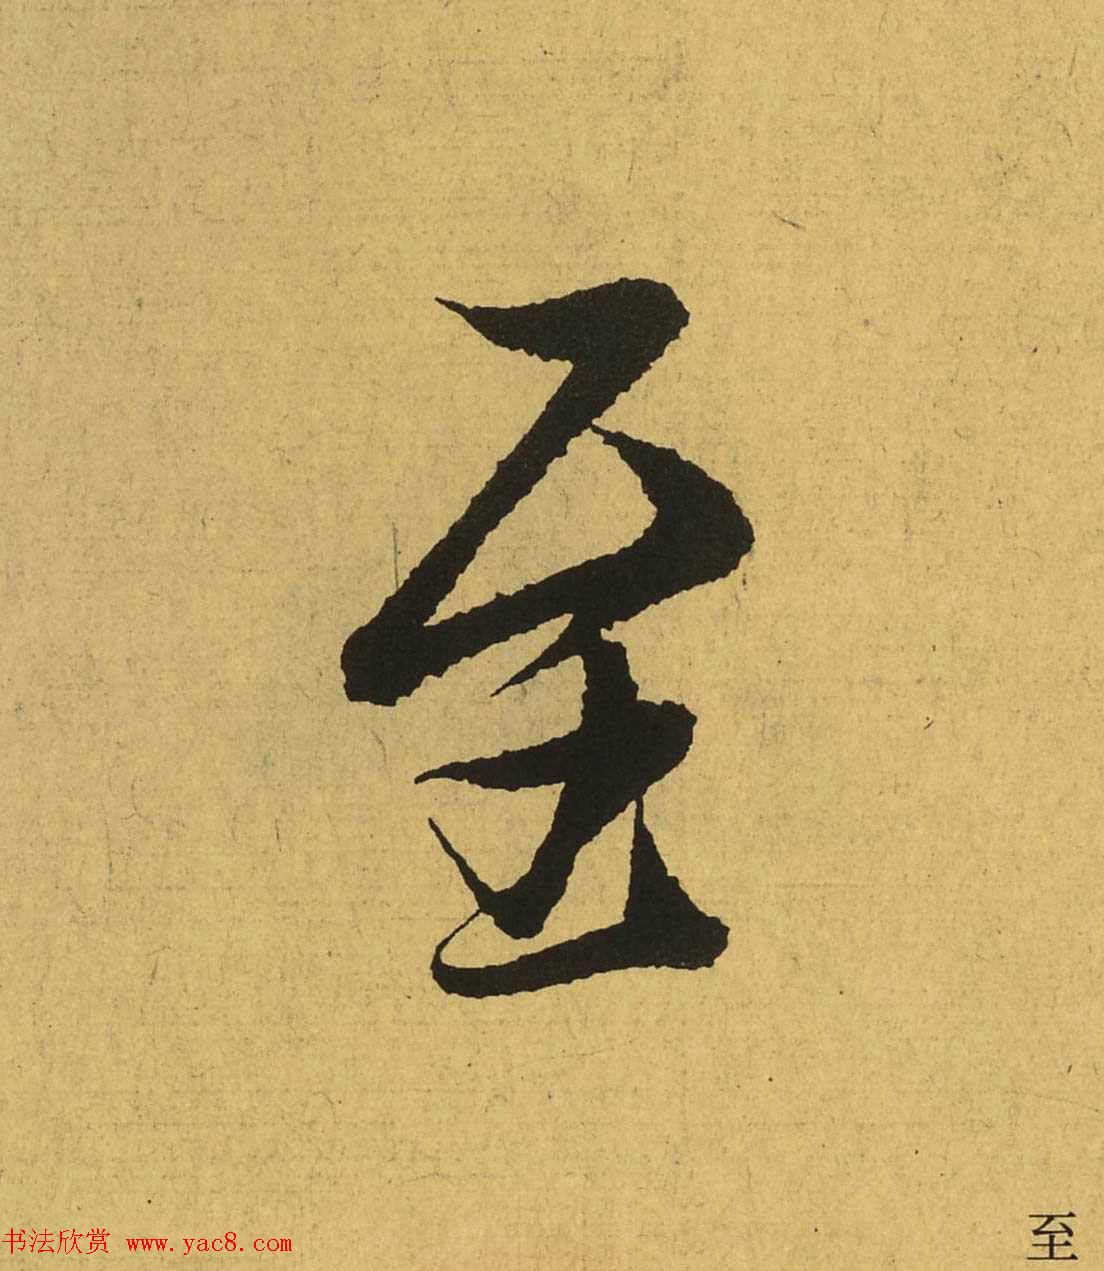 至
书法欣赏 www.yac8.com
至